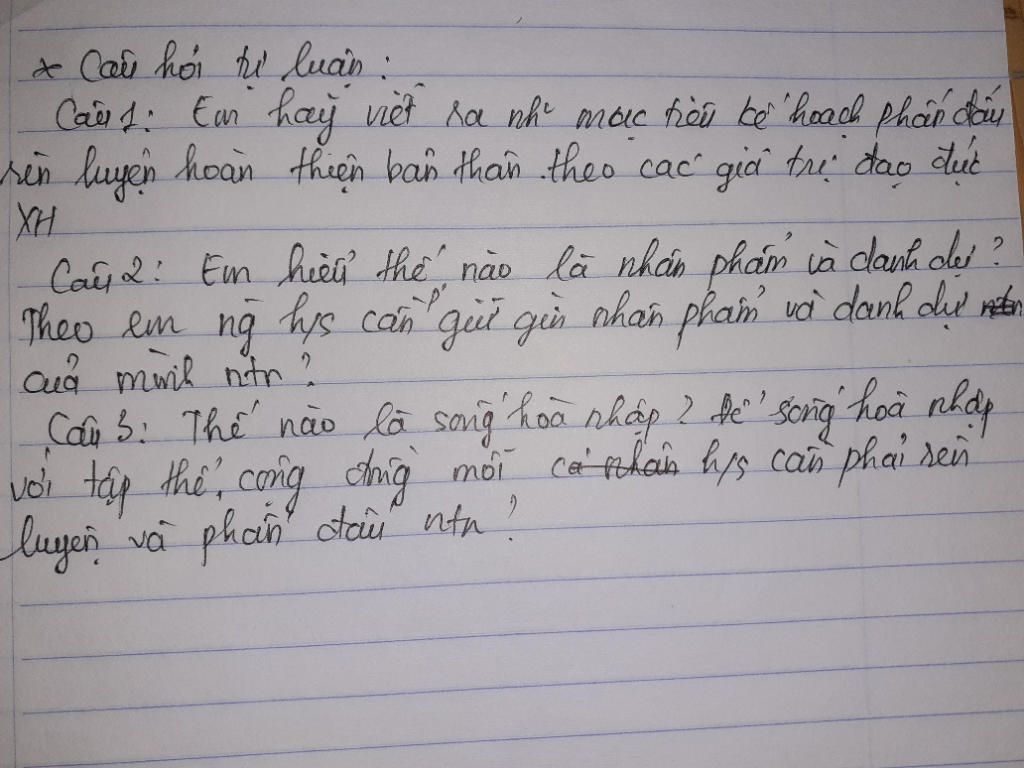 * Câu hỏi tự luận:
Câu 1: Em hãy viết ra nh~ mục tiêu kế hoạch phấn đấu
rèn luyện hoàn thiện bản thân theo các giá trị đạo đức
XH
Câu 2: Em hiểu thế nào là nhân phẩm và danh dự?
Theo em ng hs cần giữ gìn nhân phẩm và danh dự ntn
của mình ntn?
Câu 3: Thế nào là sống hoà nhập? Để sống hoà nhập
với tập thể, cộng đồng mỗi cá nhân hs cần phải rèn
luyện và phấn đấu ntn?